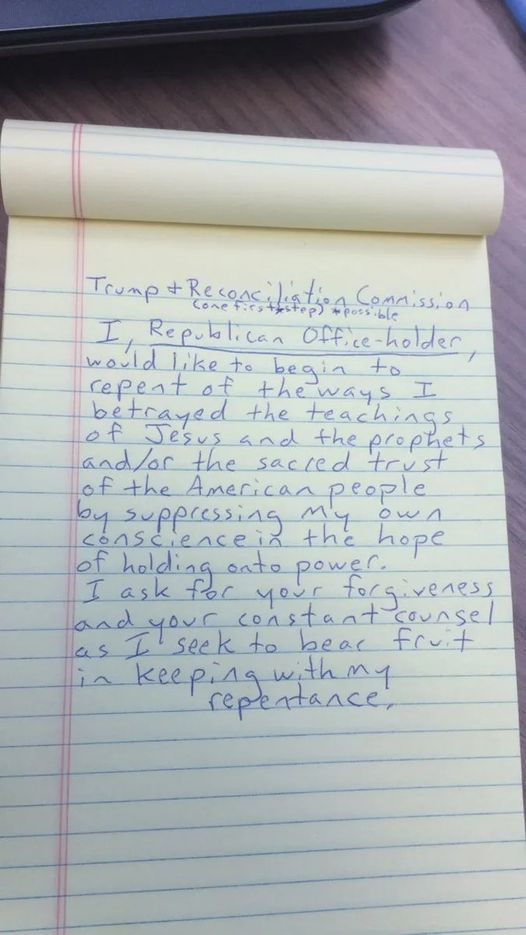 Trump + Reconciliation Commission
(one first *step) *possible
I, Republican Office-holder,
would like to begin to
repent of the ways I
betrayed the teachings
of Jesus and the prophets
and/or the sacred trust
of the American people
by suppressing my own
conscience in the hope
of holding onto power.
I ask for your forgiveness
and your constant counsel
as I seek to bear fruit
in keeping with my
repentance.